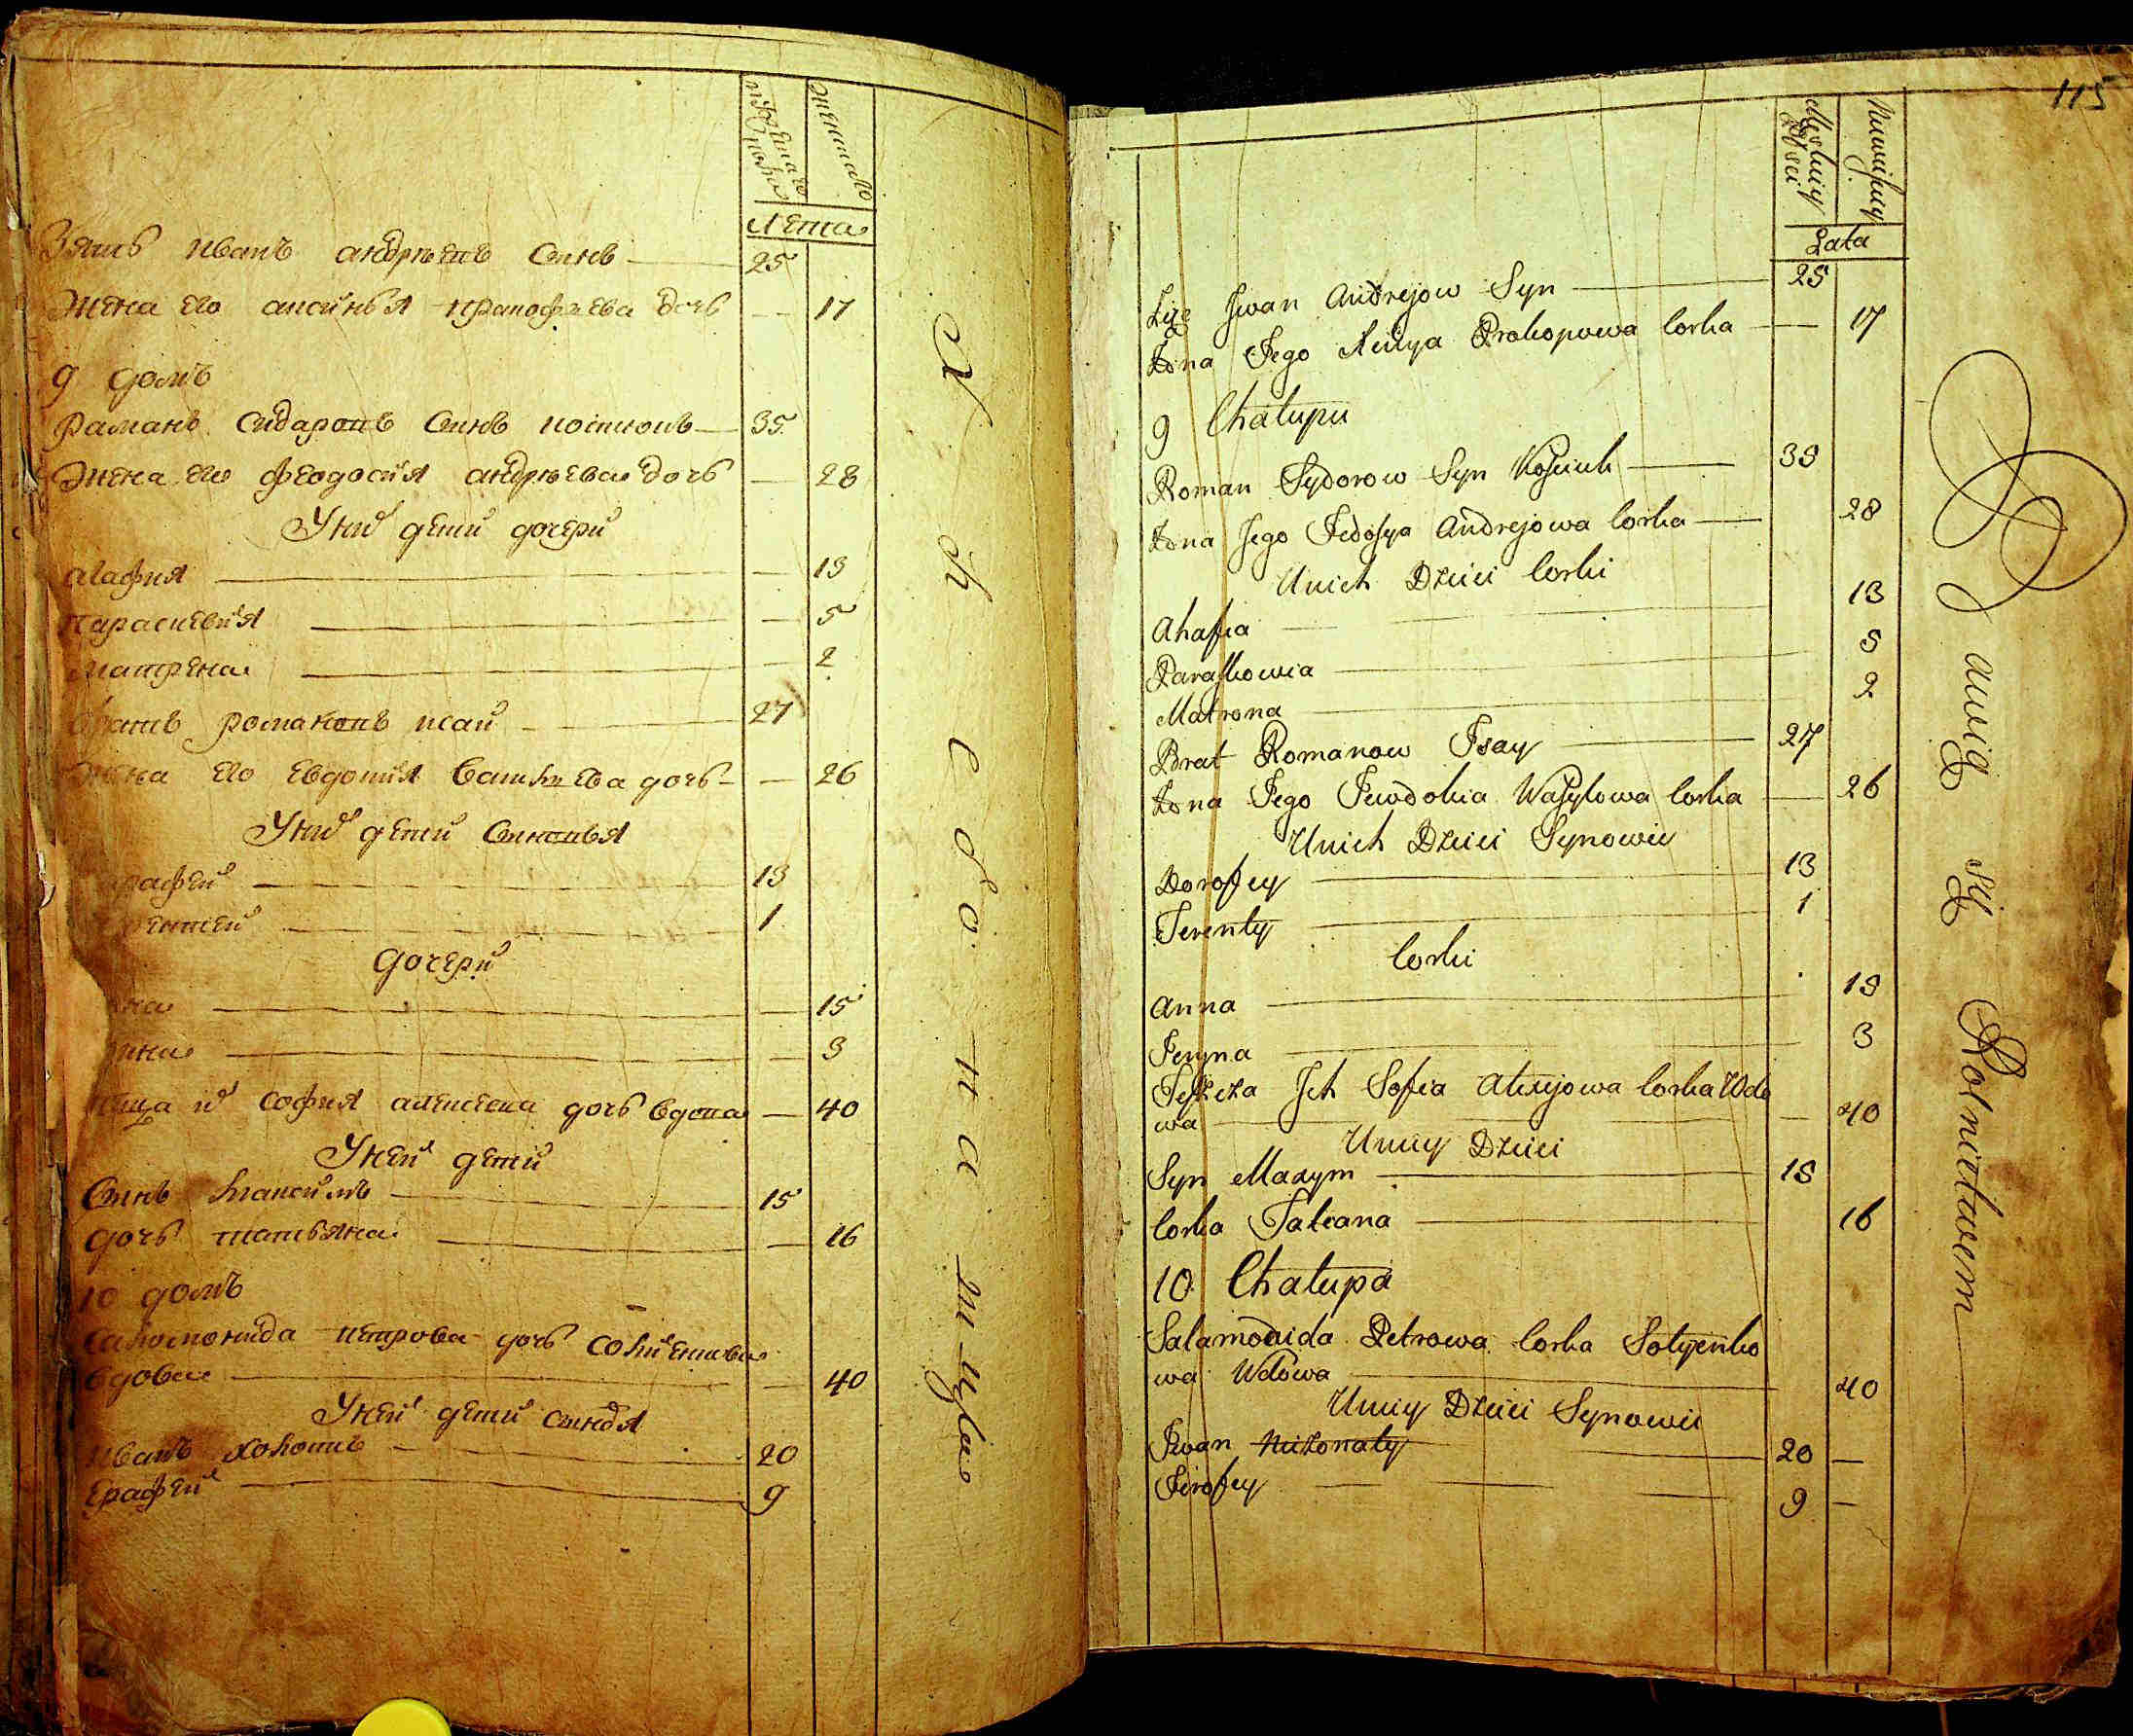 мужескаго пола
женскаго
лета
Зять иванъ андреевъ синъ 25
Жена его аксинья прокофьева дочь 17
9 домъ
Раманъ сидаровъ синъ костковъ 35
Жена его феодосия андреева дочь 28
У них дети дочери
агафия 13
параскевия 5
матрена 2
братъ романовъ исай 27
Жена его евдокия василиева дочь 26
У них дети синовья
рафей 13
рентей 1
дочери
15
3
их софия алексеева дочь вдова 40
У ней дети
Синъ максимъ 15
дочь татьяна 16
10 домъ
саломонида петрова дочь
вдова 40
У ней дети синовя
иванъ холостъ 20
Ерафей 9
115
Męskiey Płci
Niewieściey
Lata
Zięć Jwan Andrejow Syn 25
Żona Jego Prokopowa Corka 17
9 Chałupa
Roman Sydorow Syn 35
Żona Jego Fedosya Andrejowa Corka 28
U nich Dzieci Corki
Ahafia 13
Paraskowia 5
Matrona 2
Brat Romanow Isay 27
Żona Jego Jewdokia Wasylowa Corka 26
U nich Dzieci Synowie
Dorofey 13
Terenty 1
Corki
Anna 15
Jeryna 3
Teszcza Jch Sofia Alexejowa Corka Wdo
wa 40
U niey Dzieci
Syn Maxym 15
Corka Tatiana 16
10 Chałupa
Salamonida Petrowa Corka Sołyenko
wa Wdowa 40
U niey Dzieci Synowie
Jwan Nieżonaty 20
Jerofey 9
Rolnictwem